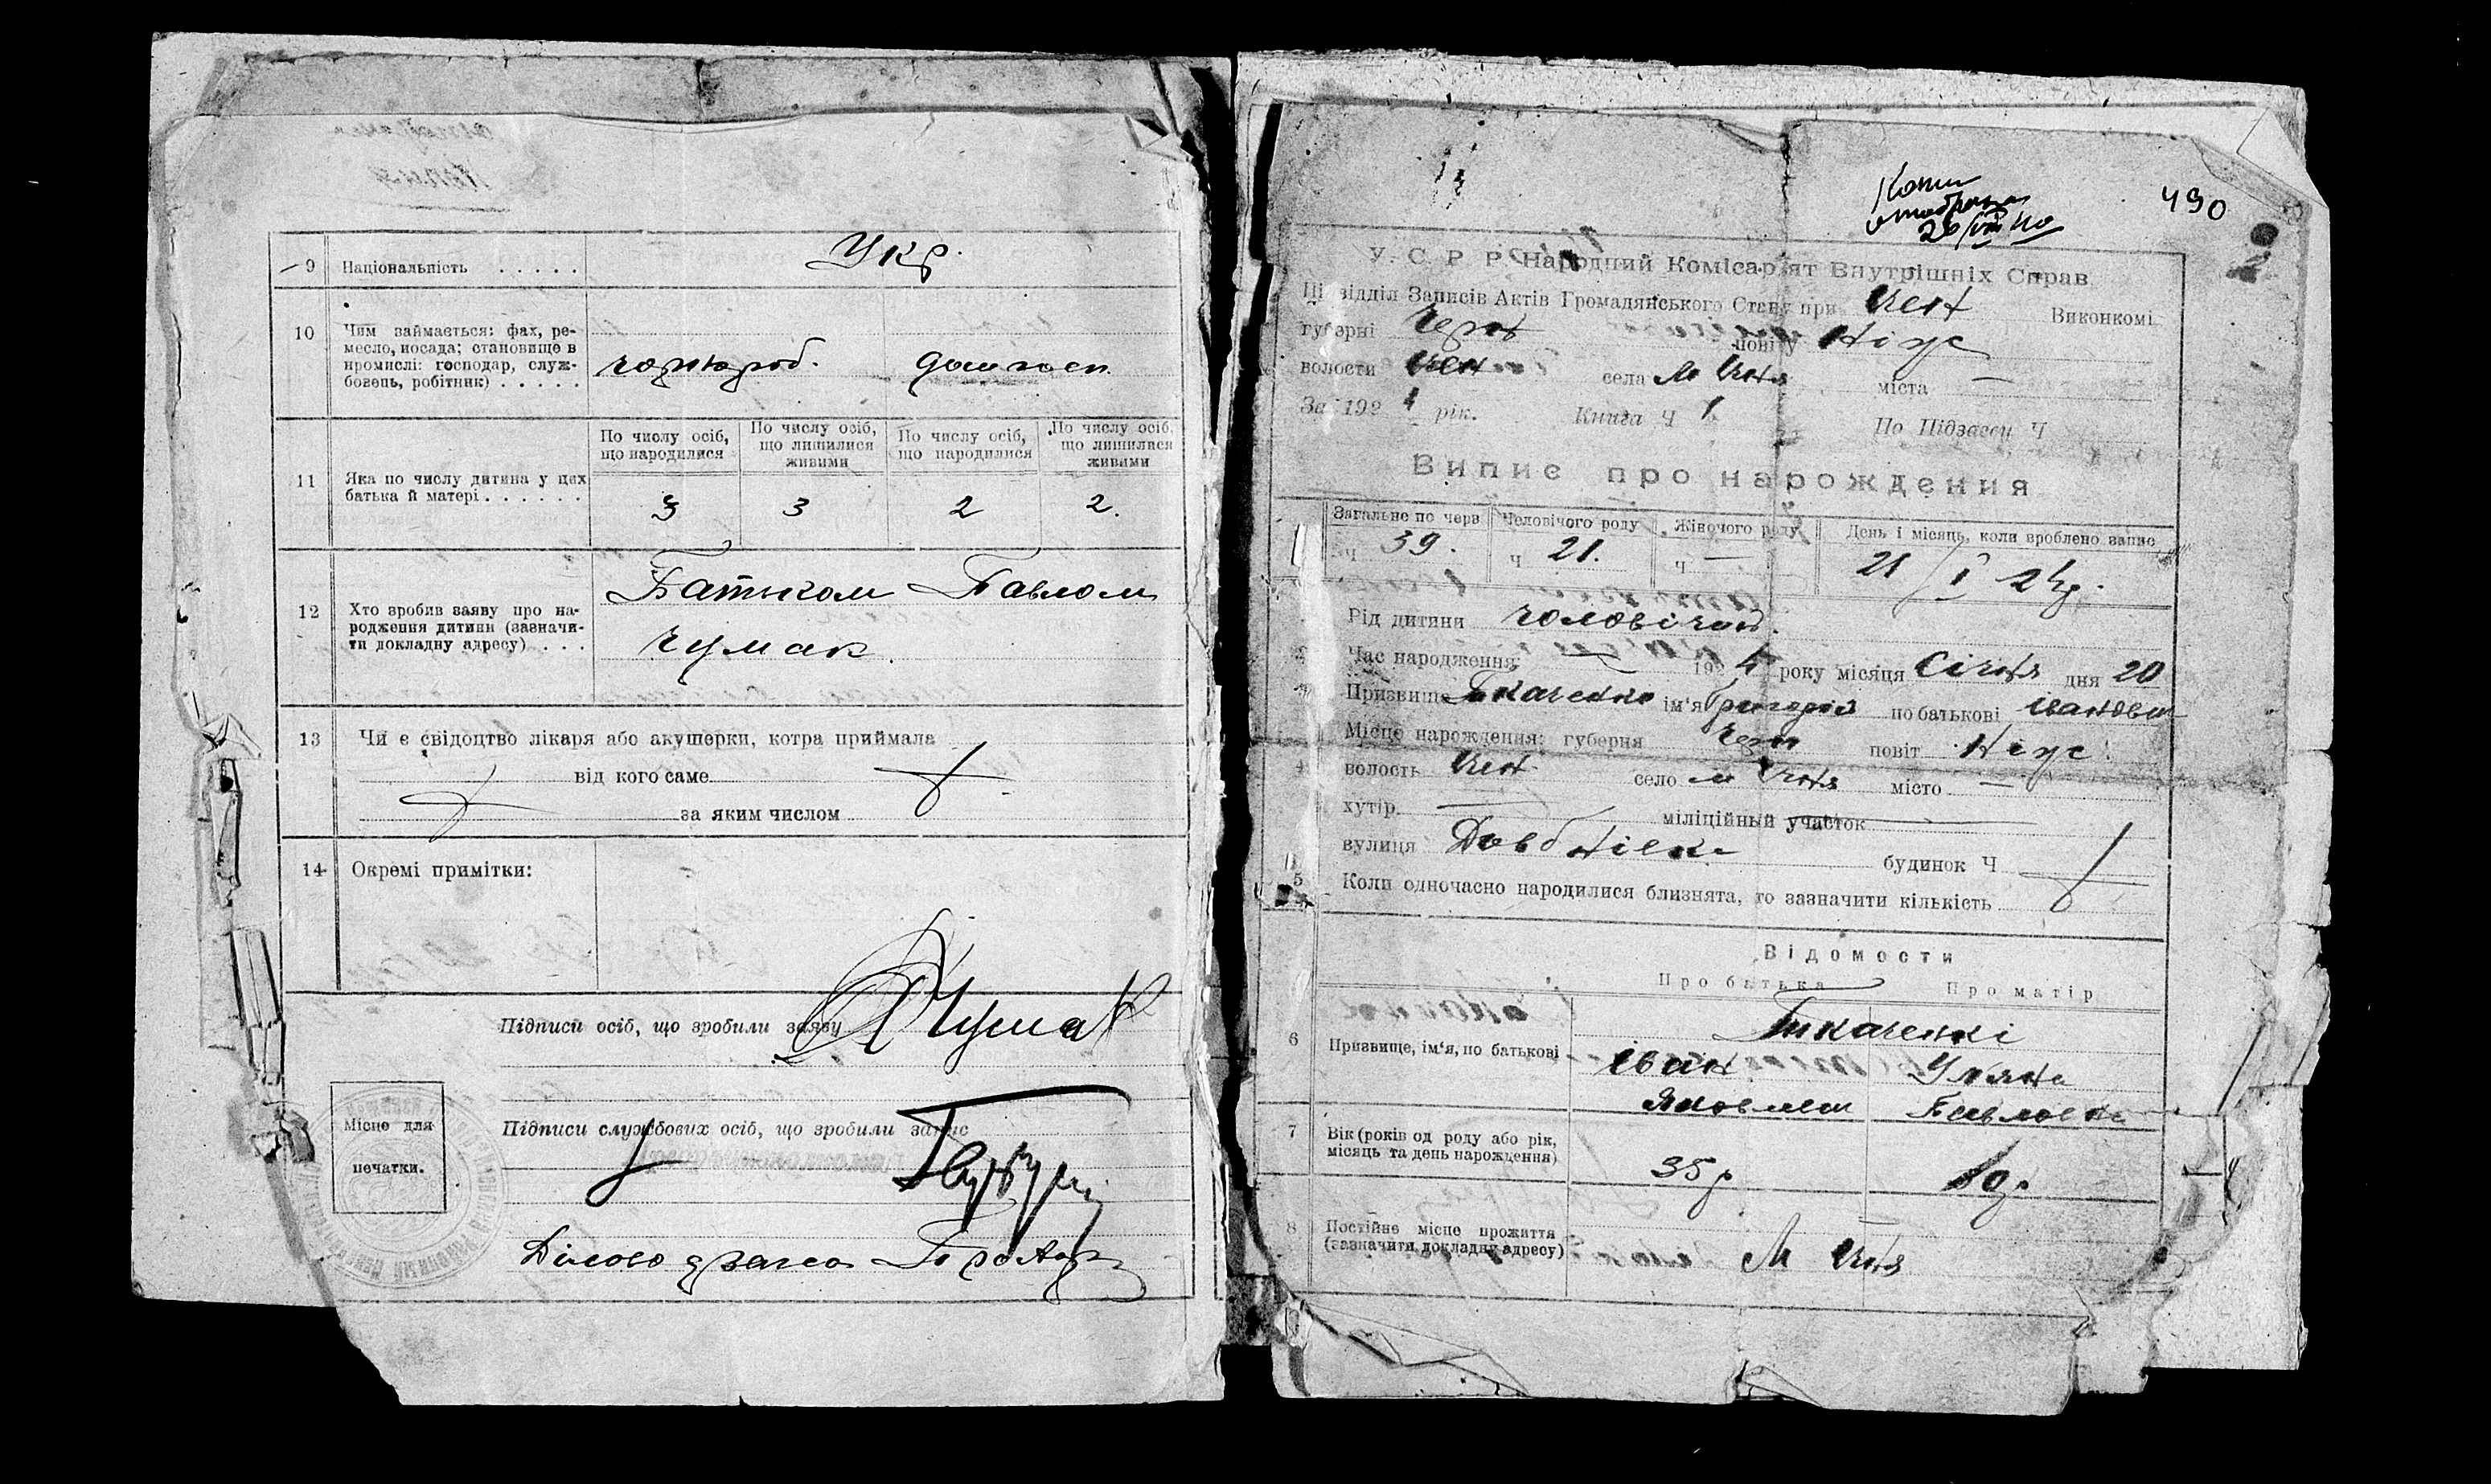 9 Національність . . . . . Укр.
10 Чим займається: фах, ре-
месло, посада; становище в
промислі: господар, служ-
бовець, робітник) . . . . .
чорнороб. дом госп.
11 Яка по числу дитина у цих
батька й матері . . . . . .
По числу осіб,
що народилися
По числу осіб,
що лишилися
живими
По числу осіб,
що народилися
По числу осіб,
що лишилися
живими
3 3 2 2.
12 Хто зробив заяву про на-
родження дитини (зазначи-
ти докладну адресу) . . .
Батьком Павлом
Чумак.
13 Чи є свідоцтво лікаря або акушерки, котра приймала
від кого саме
за яким числом
14 Окремі примітки:
Підписи осіб, що зробили заяву Чумак
Підписи службових осіб, що зробили запис
Місце для
печатки.
Діловод
Копия
отобрана
26/VIII 40
490
У. С. Р. Р. Народний Комісар'ят Внутрішніх Справ
відділ Записів Актів Громадянського Стану при Ичн Виконкомі
губерні Черн повіту Ніж
волости Ичн села М Ичня міста —
За 1924 рік. Книга Ч 1 По Підзагсу Ч
Випис про народження
Загальне по черв Чоловічого роду Жіночого роду День і місяць, коли вроблено запис
ч 39. ч 21. ч — 21/I 24р.
Рід дитини чоловічий.
Час народження: 1924 року місяця Січня дня 20
Призвище Ткаченко ім'я Григорій по батькові Іванович
Місце нарождення: губерня Черн повіт Ніж.
4 волость Ичн село м Ичня місто —
хутір — міліційный участок —
вулиця Довбнівка будинок Ч
5 Коли одночасно народилися близнята, то зазначити кількість
Відомости
Про батька Про матір
Ткаченкі
6 Призвище, ім'я, по батькові Іван Уляна
Яковлевич Павловна
7 Вік (років од роду або рік,
місяць та день нарождення)
35р
8 Постійне місце прожиття
(зазначити докладну адресу)
М Ичня